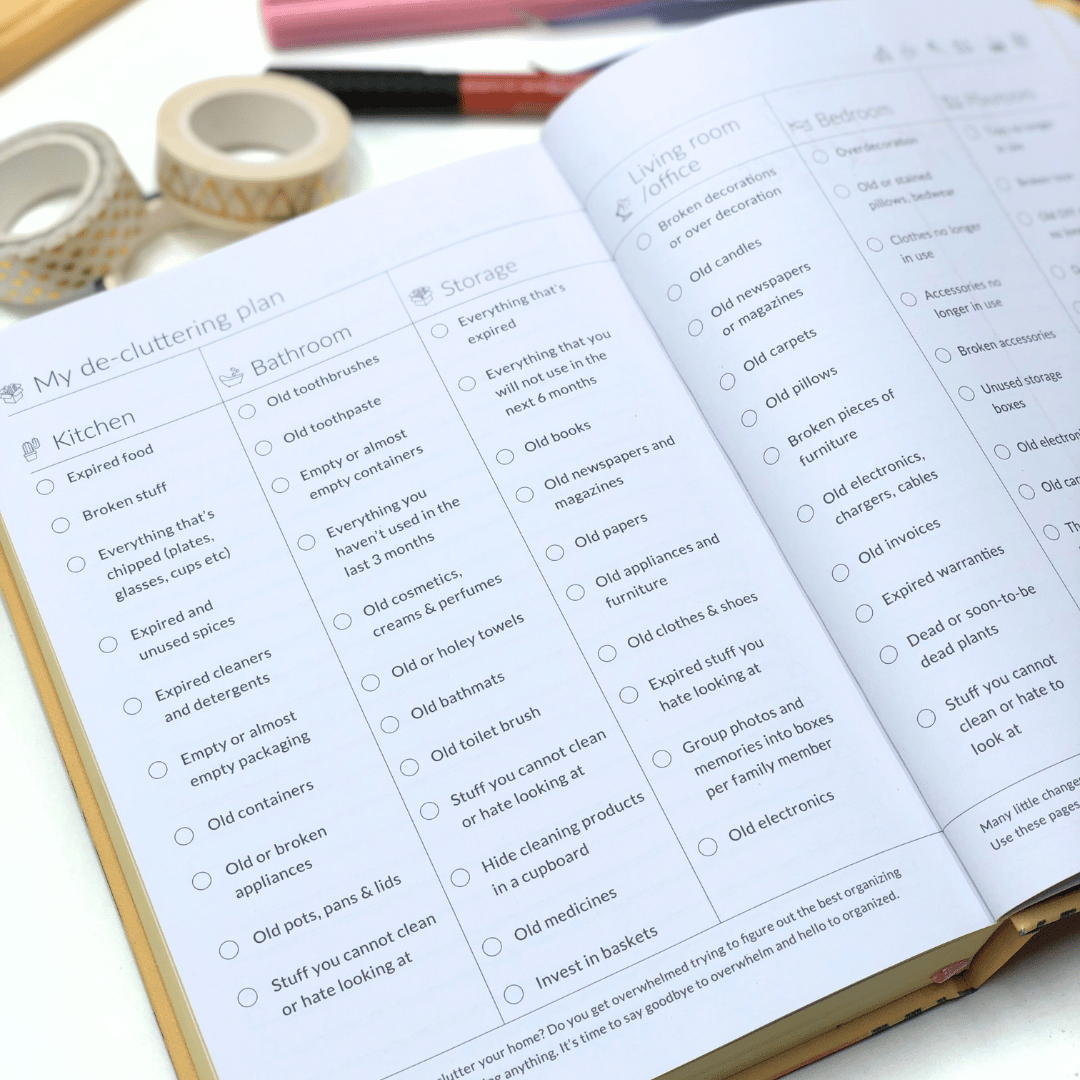 My de-cluttering plan
Kitchen
Expired food
Broken stuff
Everything that's
chipped (plates,
glasses, cups etc)
Expired and
unused spices
Expired cleaners
and detergents
Empty or almost
empty packaging
Old containers
Old or broken
appliances
Old pots, pans & lids
Stuff you cannot clean
or hate looking at
Bathroom
Old toothbrushes
Old toothpaste
Empty or almost
empty containers
Everything you
haven't used in the
last 3 months
Old cosmetics,
creams & perfumes
Old or holey towels
Old bathmats
Old toilet brush
Stuff you cannot clean
or hate looking at
Hide cleaning products
in a cupboard
Old medicines
Invest in baskets
Storage
Everything that's
expired
Everything that you
will not use in the
next 6 months
Old books
Old newspapers and
magazines
Old papers
Old appliances and
furniture
Old clothes & shoes
Expired stuff you
hate looking at
Group photos and
memories into boxes
per family member
Old electronics
your home? Do you get overwhelmed trying to figure out the best organizing
anything. It's time to say goodbye to overwhelm and hello to organized.
Living room
/office
Broken decorations
or over decoration
Old candles
Old newspapers
or magazines
Old carpets
Old pillows
Broken pieces of
furniture
Old electronics,
chargers, cables
Old invoices
Expired warranties
Dead or soon-to-be
dead plants
Stuff you cannot
clean or hate to
look at
Bedroom
Overdecoration
Old or stained
pillows, bedwear
Clothes no longer
in use
Accessories no
longer in use
Broken accessories
Unused storage
boxes
Old
Old
Many little
Use these pages